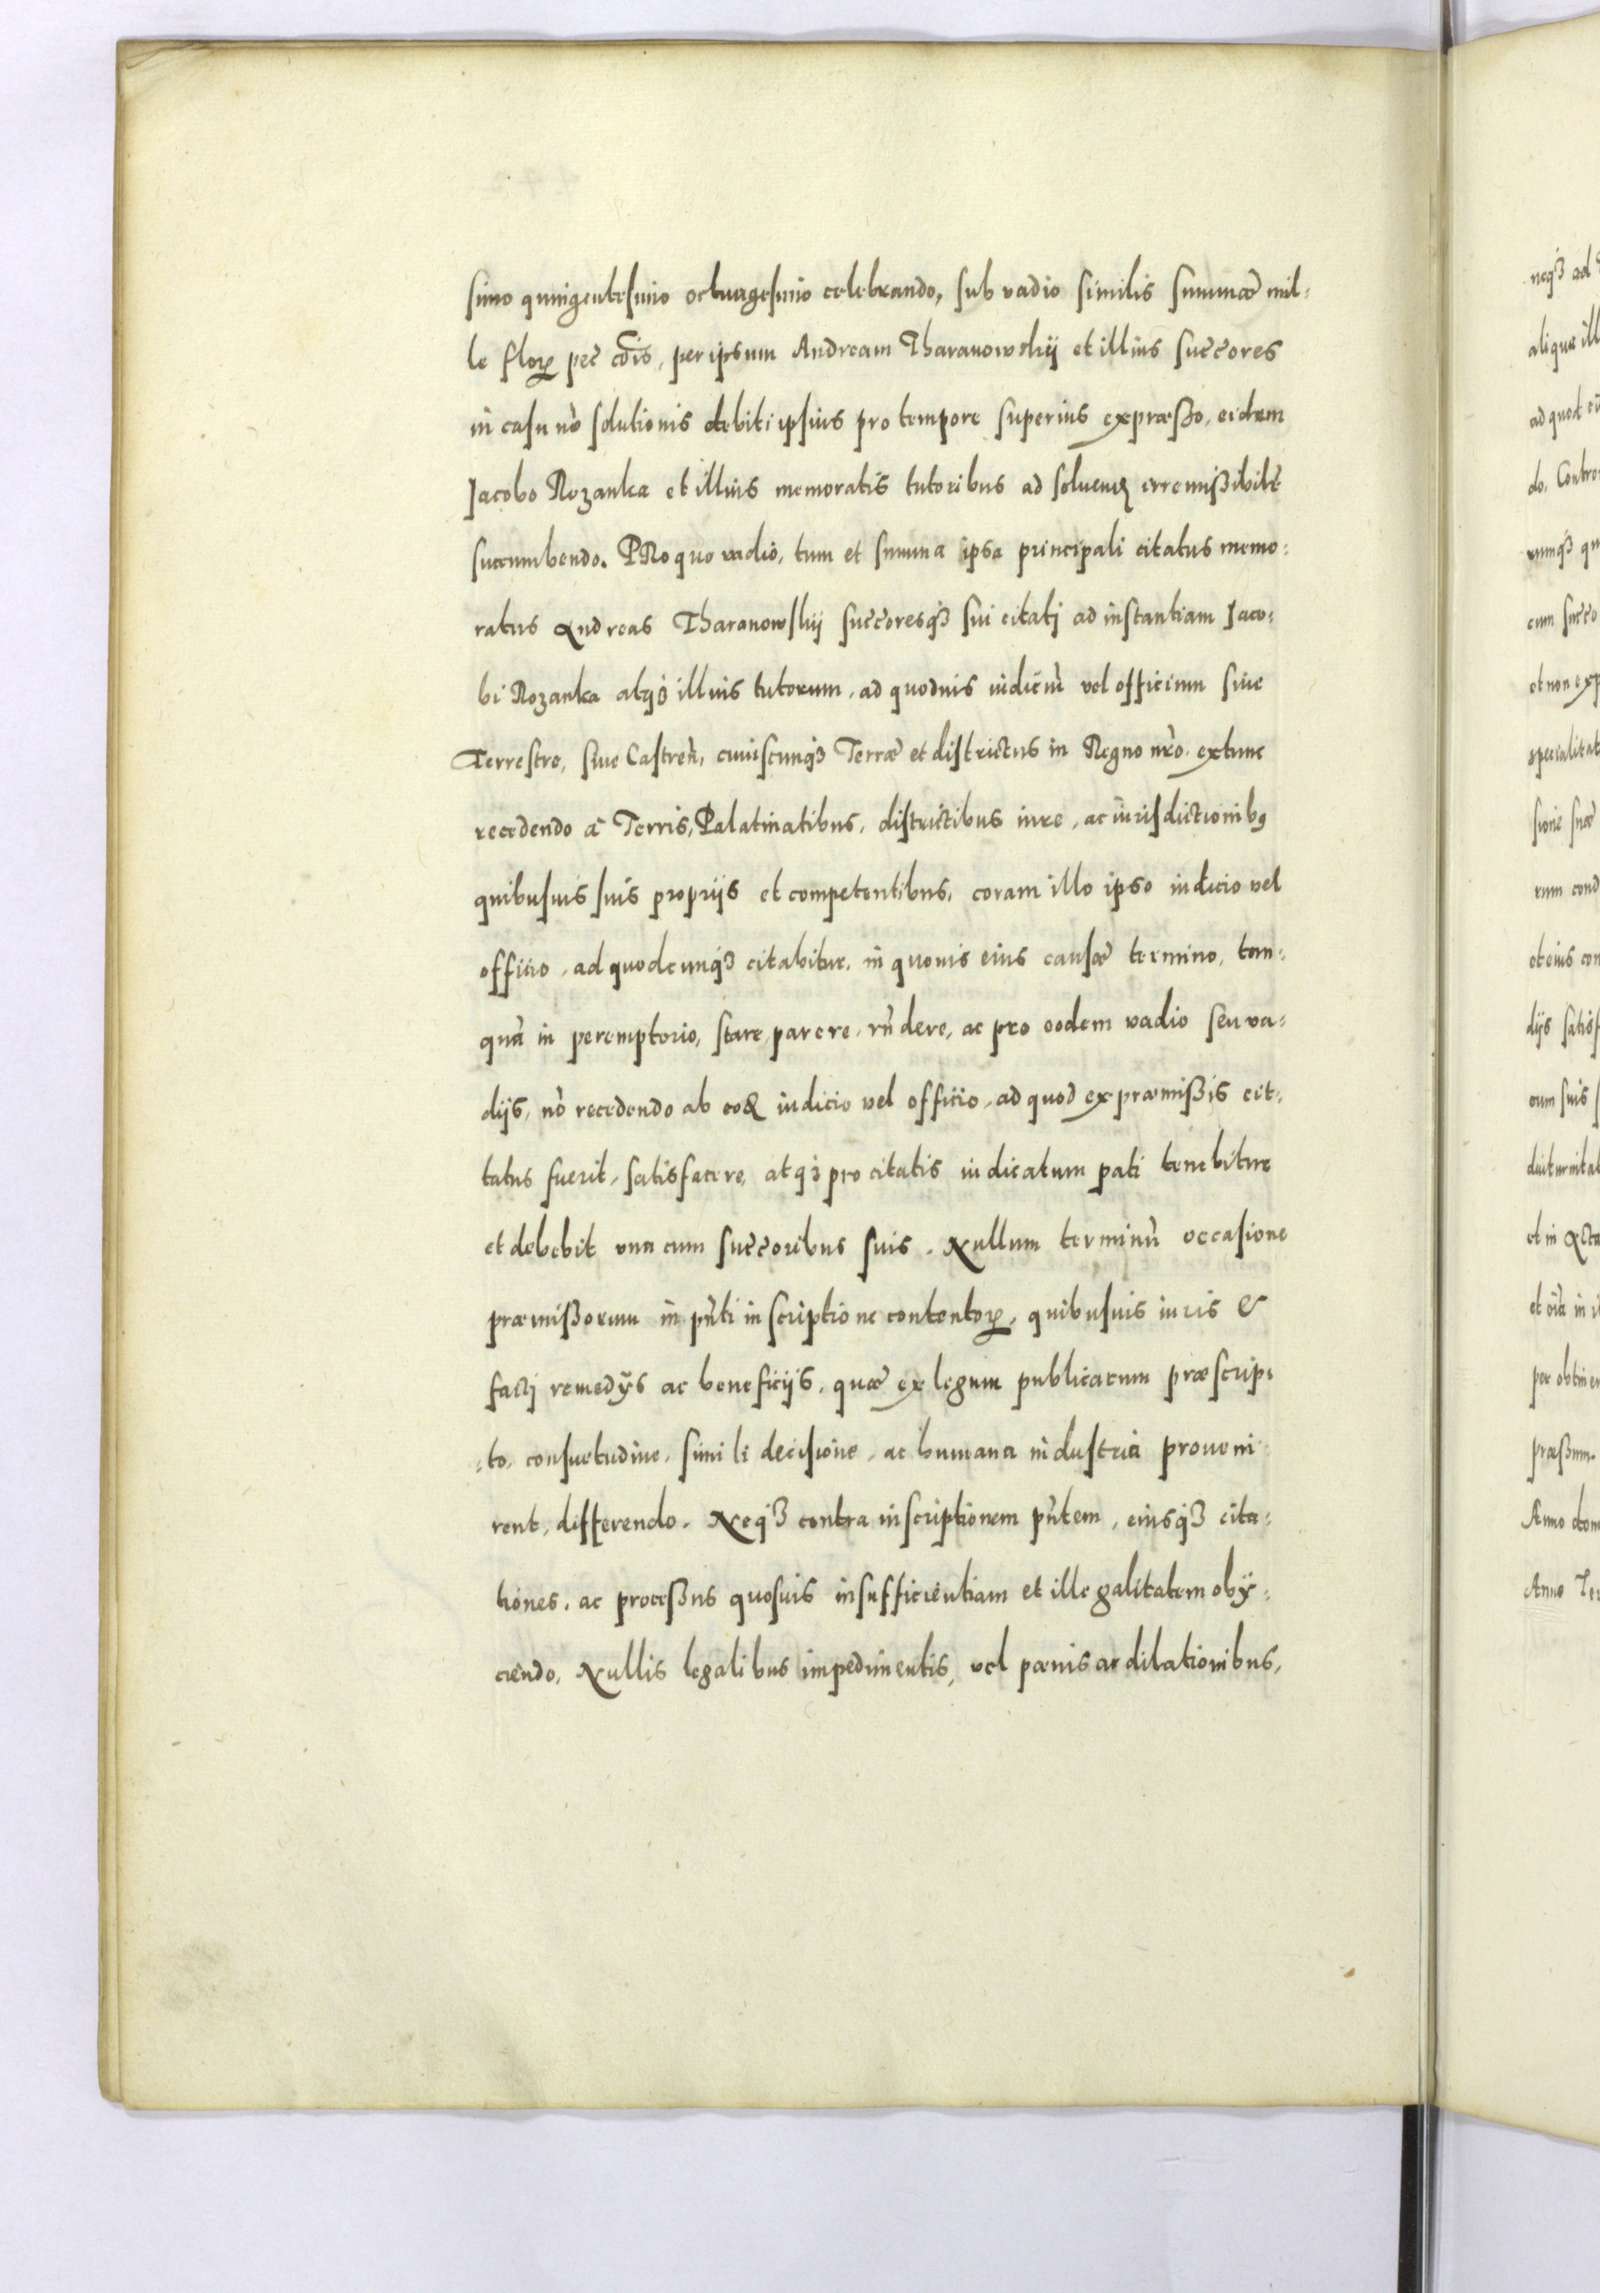 simo quingentesimo octuagesimo celebrando, sub vadio similis summæ mil=
le florꝝ pec̃ cõis, per ipsum Andream Tharanowskij et illius succ̃ores
in casu nõ solutionis debiti ipsius pro tempore superius expræsso, eidem
Jacobo Rozanka et illius memoratis tutoribus ad soluenꝺ irremissibilr̃
succumbendo. PRo quo vadio, tum et summa ipsa principali citatus memo=
ratus Andreas Tharanowskij succ̃oresqꝫ sui citati ad instantiam Jaco=
bi Rozanka atqꝫ illius tutorum, ad quoduis iudiciũ vel officium siue
Terrestre, siue Castreñ, cuiuscunqꝫ Terræ et districtus in Regno nr̃o extunc
recedendo à Terris, Palatinatibus, districtibus iure, ac iurisdictionibꝰ
quibusuis suis proprijs et competentibus, coram illo ipso iudicio vel
officio, ad quodcunqꝫ citabitur, in quouis eius causæ termino, tan=
quã in peremptorio, stare, parere, rñdere, ac pro eodem vadio seu va=
dijs, nõ recedendo ab eoꝺ iudicio vel officio, ad quod ex præmissis cit=
tatus fuerit, satisfacere, atqꝫ pro citatis iudicatum pati tenebitur
et debebit vna cum succ̃oribus suis. Nullum terminũ occasione
præmissorum in pñti inscriptione contentoꝝ, quibusuis iuris &
facti remedijs ac beneficijs, quæ ex legum publicarum præscrip=
=to, consuetudine, simili decisione, ac humana industria proueni
rent, differendo. Neqꝫ contra inscriptionem pñtem, eiusqꝫ cita=
tiones, ac processus quosuis insufficientiam et illegalitatem obij=
ciendo, Nullis legalibus impedimentis, vel pænis ac dilationibus,
neqꝫ ad
aliquæ ill
ad quod
do. Contro
cum succo
et non exp
specialitat
sione suæ
rum cond
et eius con
dijs satisf
cum suis
diuturnitat
et in Acta
et oĩa in
per obtinen
præssum.
Anno dom
Anno Ter